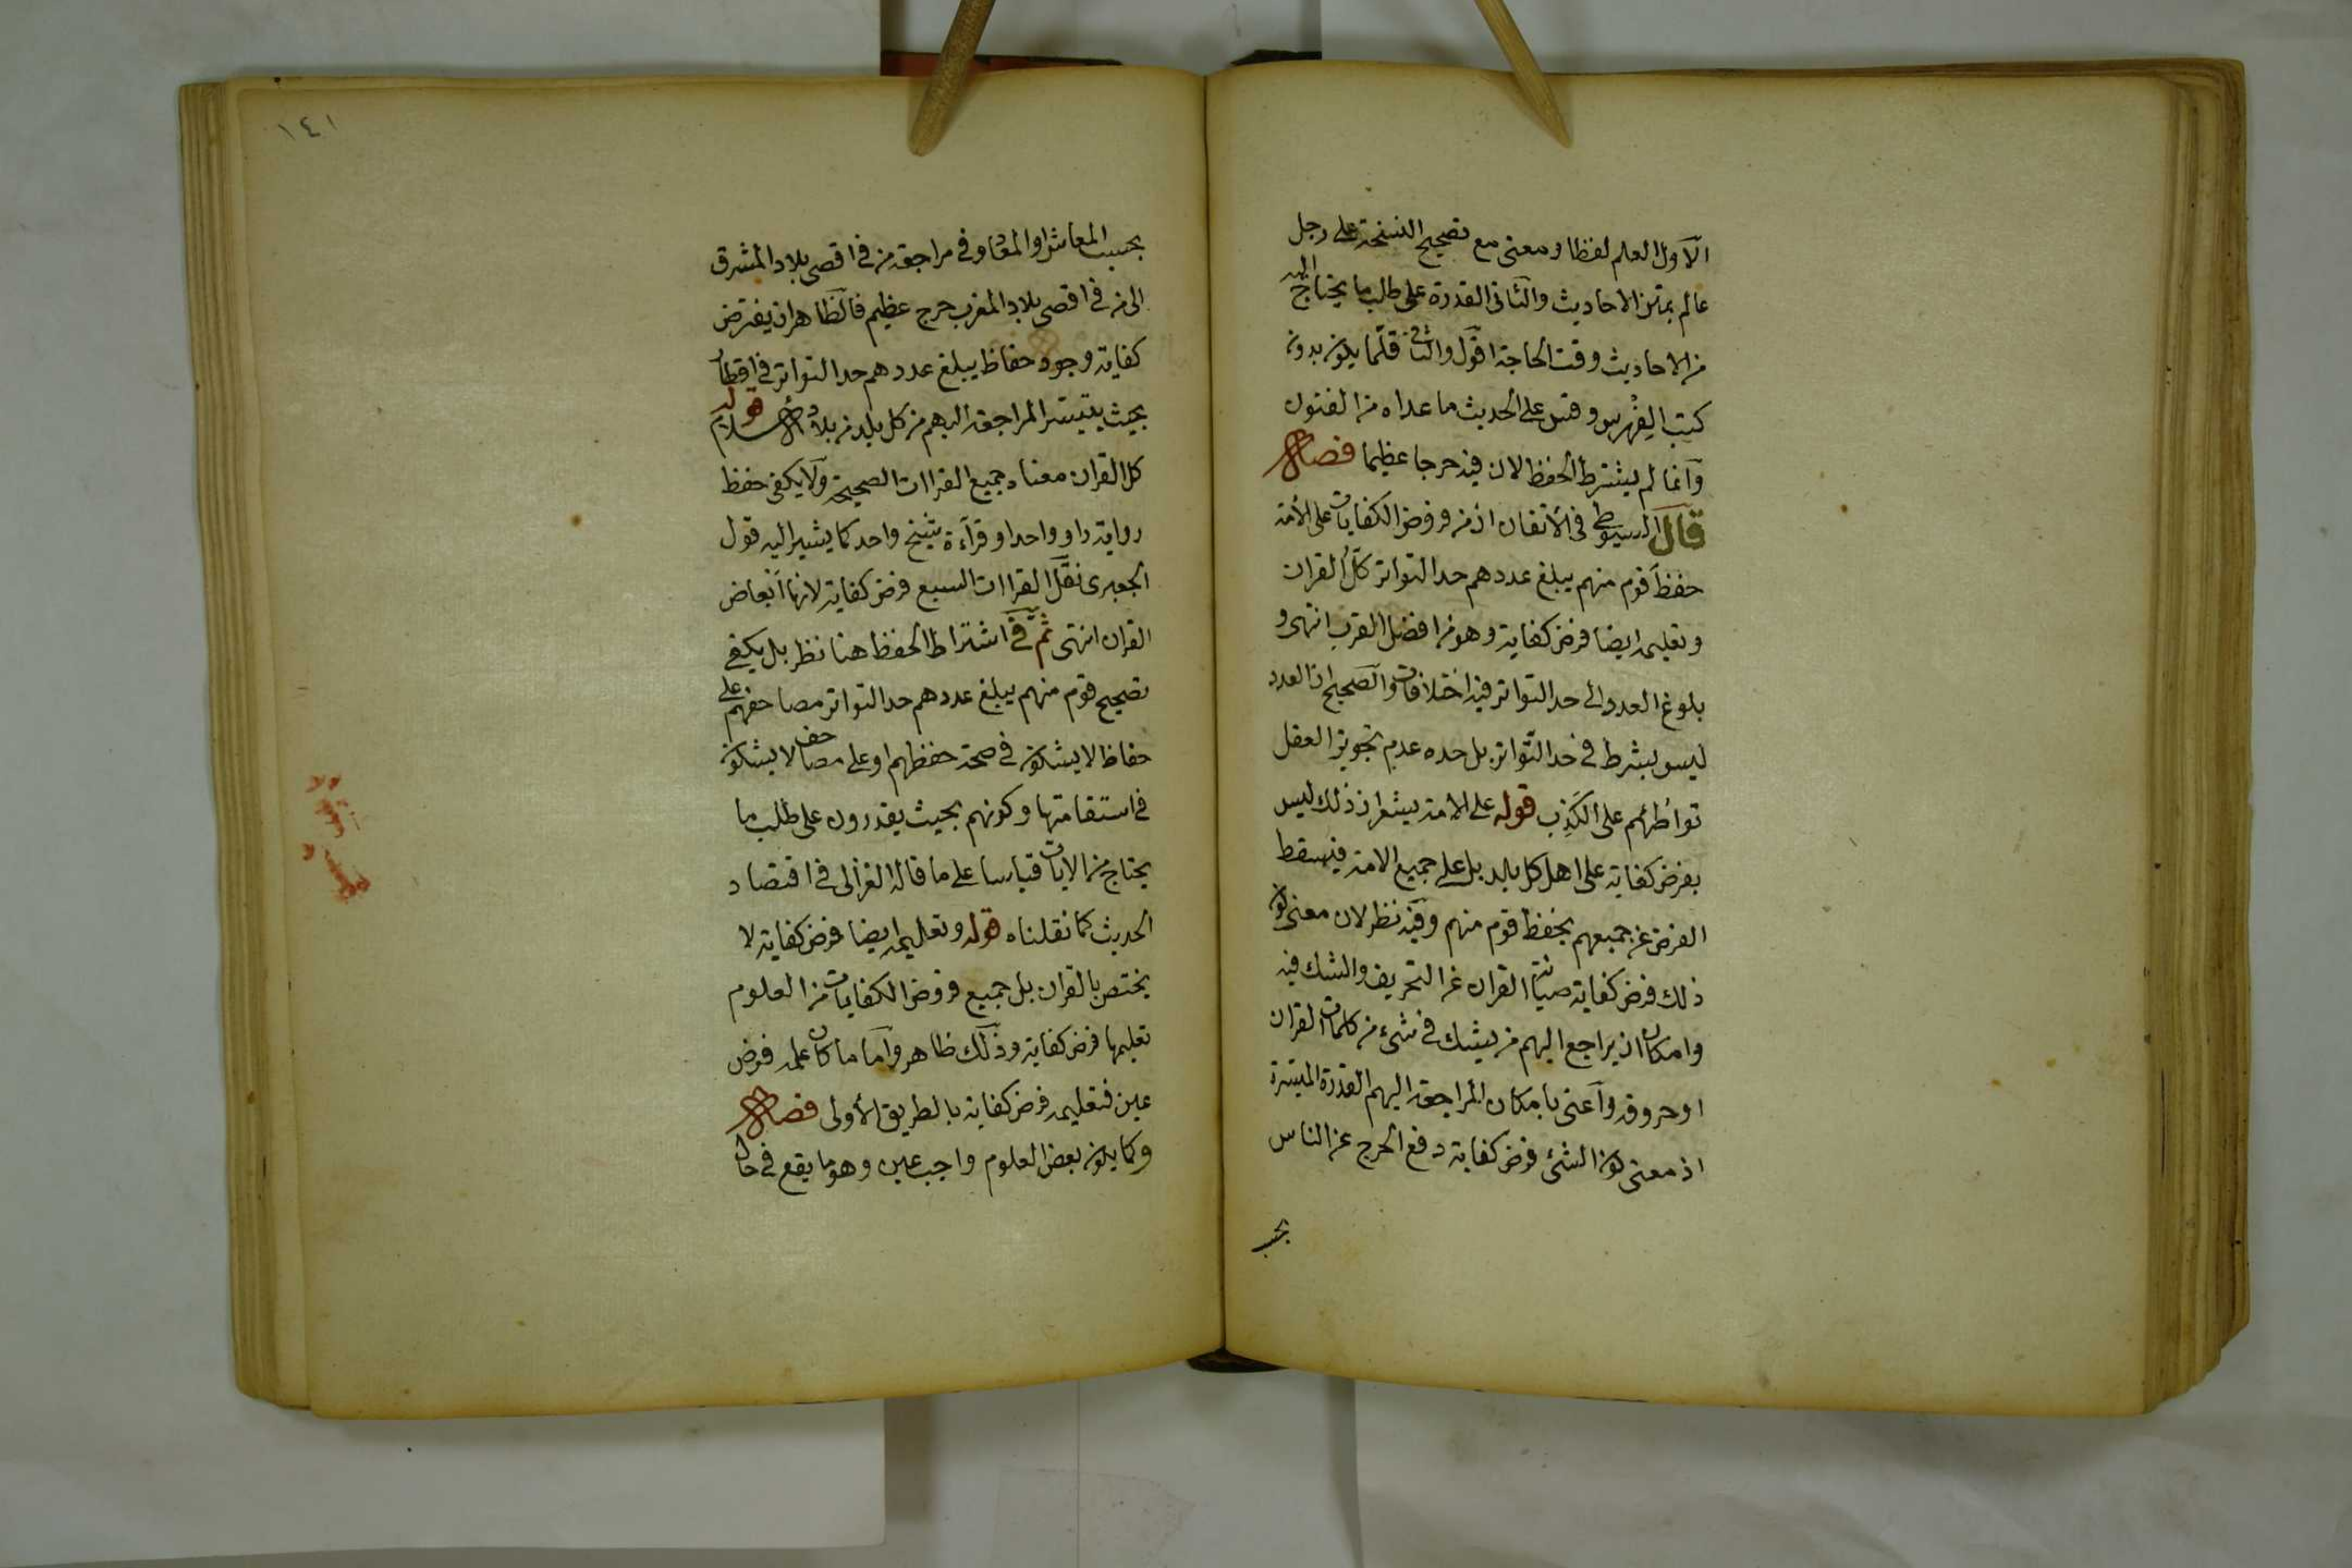 الاول العلم لفظا ومعنى مع تصحيح النسخة على رجل
عالم بمتن الاحاديث والثانى القدرة على طلب ما يحتاج اليه
من الاحاديث وقت الحاجة اقول والثانى قلّما يكون بدون
كتب الفِهْرِس وقس على الحديث ما عداه من الفنون
وانما لم يشترط الحفظ لان فيه حرجا عظيما فصل
قال السيوطى فى الاتقان ان من فروض الكفايات على الأمة
حفظ قوم منهم يبلغ عددهم حد التواتر كلَّ القران
وتعليمه ايضا فرض كفاية وهو من افضل القرب انتهى و
بلوغ العدد الى حد التواتر فيه اختلافات والصحيح ان العدد
ليس بشرط فى حد التواتر بل حده عدم تجويز العقل
تواطُئهم على الكَذِب قوله على الامة يشعر ان ذلك ليس
بفرض كفاية على اهل كل بلد بل على جميع الامة فيسقط
الفرض عن جميعهم بحفظ قوم منهم وفيه نظر لان معنى كون
ذلك فرض كفاية صيانة القران عن التحريف والشك فيه
وامكان ان يراجع اليهم من يشك فى شىء من كلمات القران
او حروفه واعنى بامكان المراجعة اليهم القدرة الميسّرة
اذ معنى كون الشئ فرض كفاية دفع الحرج عن الناس
بحسب
١٤١
بحسب المعاش او المعاد وفى مراجعة من فى اقصى بلاد المشرق
الى من فى اقصى بلاد المغرب حرج عظيم فالظاهر ان يفترض
كفاية وجود حفاظ يبلغ عددهم حد التواتر فى اقطار
بحيث يتيسّر المراجعة اليهم من كل بلد من بلاد الاسلام قوله
كل القران معناه جميع القراات الصحيحة ولا يكفى حفظ
رواية راو واحد او قرآءة شيخ واحد كما يشير اليه قول
الجعبرى نقل القراات السبع فرض كفاية لانها ابعاض
القران انتهى ثم فى اشتراط الحفظ هنا نظر بل يكفى
تصحيح قوم منهم يبلغ عددهم حد التواتر مصاحفهم على
حفاظ لا يشكون فى صحة حفظهم او على مصاحف لا يشكون
فى استقامتها وكونهم بحيث يقدرون على طلب ما
يحتاج من الايات قياسا على ما قاله الغزالى فى اقتصاد
الحديث كما نقلناه قوله وتعليمه ايضا فرض كفاية لا
يختص بالقران بل جميع فروض الكفايات من العلوم
تعليمها فرض كفاية وذلك ظاهر واما ما كان علمه فرض
عين فتعليمه فرض كفاية بالطريق الأولى فصل
وكما يكون بعض العلوم واجب عين وهو ما يقع فى حال